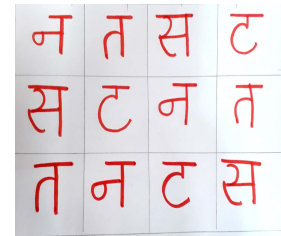 न त स ट
स ट न त
त न ट स